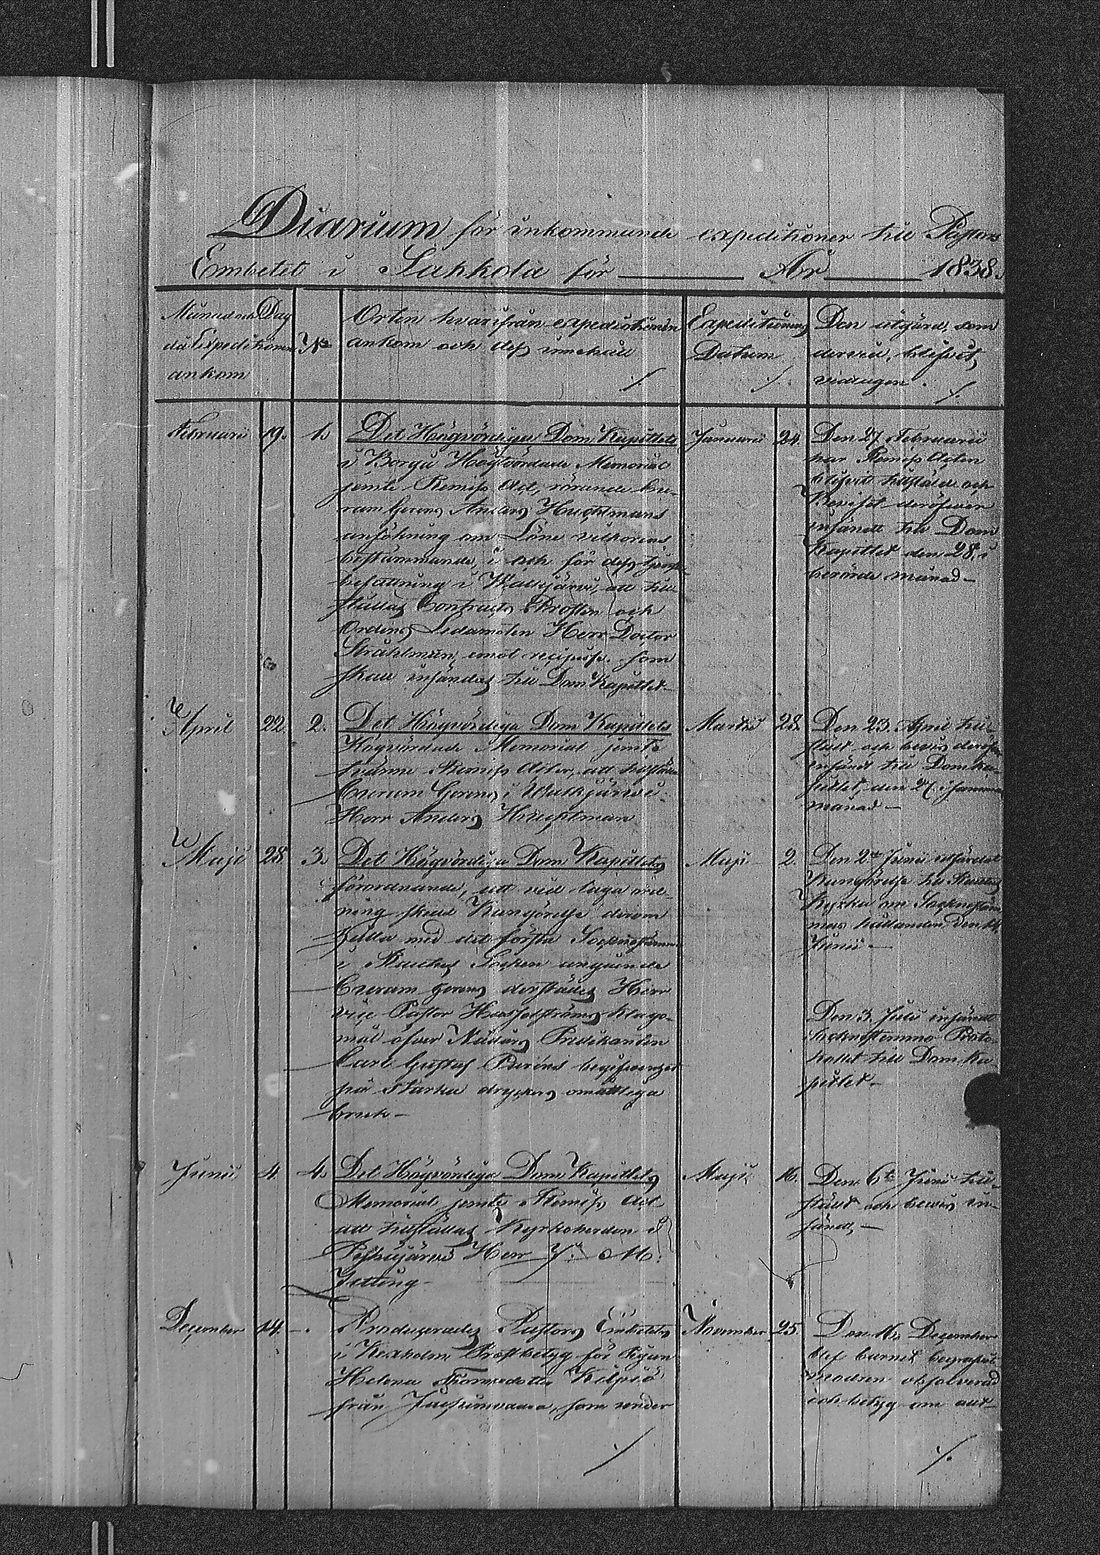 Diarium för inkommande expeditioner till Pastors
Embetet i Sakkola för År 1838.
Månad och Dag
då Expeditionen
ankom
No
Orten hvarifrån expeditionen
ankom och dess innehåll
Expeditionens
Datum
Den åtgärd, som
dervid blifvit
vidtagen.
Februarii 19. 1.
Det Högvördiga Dom Kapitlets
i Borgå Högvördade Memorial
jemte Remiss Act, rörande Cu-
ram Gerens Anders
ansökning om Löne vilkorens
bestämmande, i och för dess
befattning i Walkjärvi, att till
ställas Contracts Prosten och
Ordens Ledamoten Herr Doctor
Strählman emot recipisse som
skall insändas till Dom Kapitlet
Januarii 24.
Den 27 Februarii
har Remiss Acten
blifvit tillstäld och
Reviset deröfver
insändt till Dom
Kapitlet den 28 i
berörde månad
April 22. 2.
Det Högvördiga Dom Kapitlets
Högvördade Memorial jemte
Remiss Acter, att tillställas
Curam Gerens i Walkjärvi
Herr Anders
Martii 28.
Den 23 April till-
stäld och bevis deröfver
insändt till Dom Ka-
pitlet, den 27 i samma
månad
Maji 28 3.
Det Högvördiga Dom Kapitlets
förordnande, att vid laga ord-
ning skall Kungörelse derom
gälla med det första Sockenstämma
i Rautus Socken angående
Curam gerens derstädes Herr
vice Pastor Hasselströms klago-
mål öfver Nådårs Predikanten
Carl Gustaf begifvenhet
på starka dryckers omåttliga
bruk
Maji 2.
Den 2 Junii utfärdat
Kungörelse till Rautus
Kyrka om Sockenstäm-
mas hållande den 14
Junii
Den 3. Julii insändt
Sockenstämmo Proto-
kollet till Dom Ka-
pitlet
Junii 4. 4.
Det Högvördiga Dom Kapitlets
Memorial jemte Remiss Act
att tillställas Kyrkoherden i
Herr J. M.
Maji 16.
Den 6te Junii till-
stäld och bevis in-
sändt
December 14.
Producerades Pastors Embetets
i Kexholm Prestbetyg för Pigan
Helena
från som under
November 25.
Den 16 December
blef barnet begrafvit
modren absolverad
och betyg om